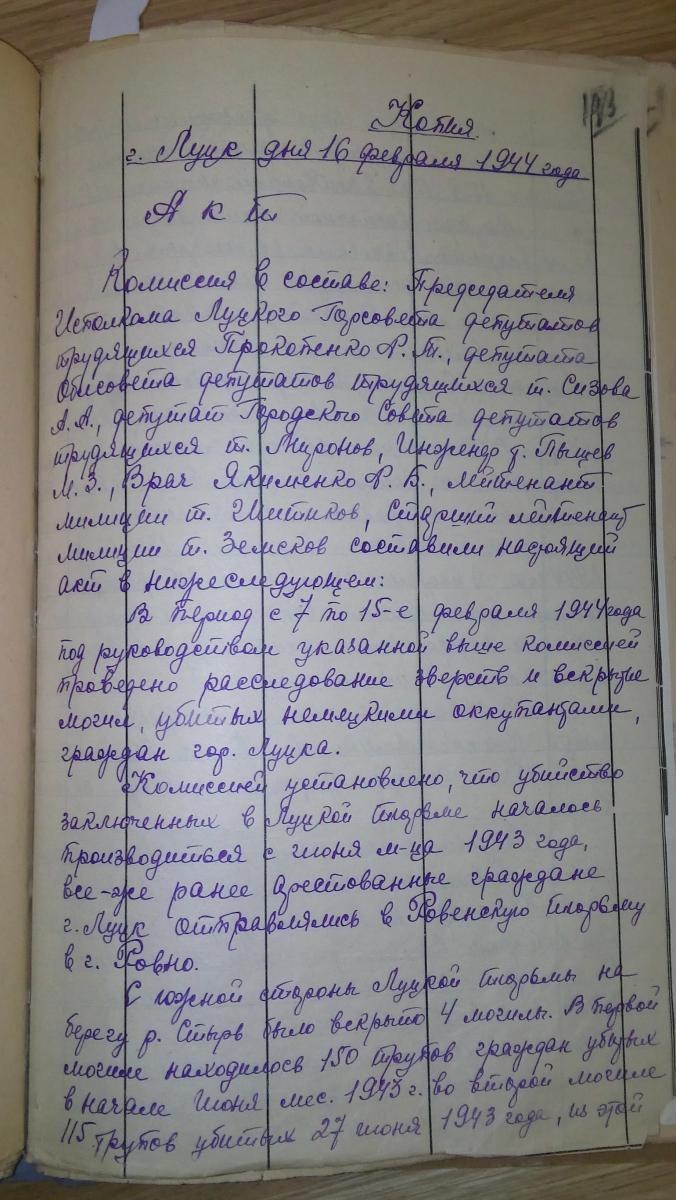 Копия
193
г. Луцк дня 16 февраля 1944 года
Акт
Комиссия в составе: Председателя
Исполкома Луцкого Горсовета депутатов
трудящихся Прокопенко Р. Т., депутата
Облсовета депутатов трудящихся т. Сизова
А.А., депутат Городского Совета депутатов
трудящихся т. Миронов, Инженер т. Пышев
М. З., Врач Якименко Р. Б., лейтенант
милиции т. Шитиков, Старший лейтенант
милиции т. Земсков составили настоящий
акт в нижеследующем:
В период с 7 по 15-е февраля 1944 года
под руководством указанной выше комиссией
проведено расследование зверств и вскрытие
могил, убитых немецкими оккупантами,
граждан гор. Луцка.
Комиссией установлено, что убийство
заключенных в Луцкой тюрьме началось
производиться с июня м-ца 1943 года,
все-же ранее арестованные граждане
г. Луцк отправлялись в Ровенскую тюрьму
в г. Ровно.
С южной стороны Луцкой тюрьмы на
берегу р. Стырь было вскрыто 4 могилы. В первой
могиле находилось 150 трупов граждан убитых
в начале июня мес. 1943 г. во второй могиле
115 трупов убитых 27 июня 1943 года, из этой